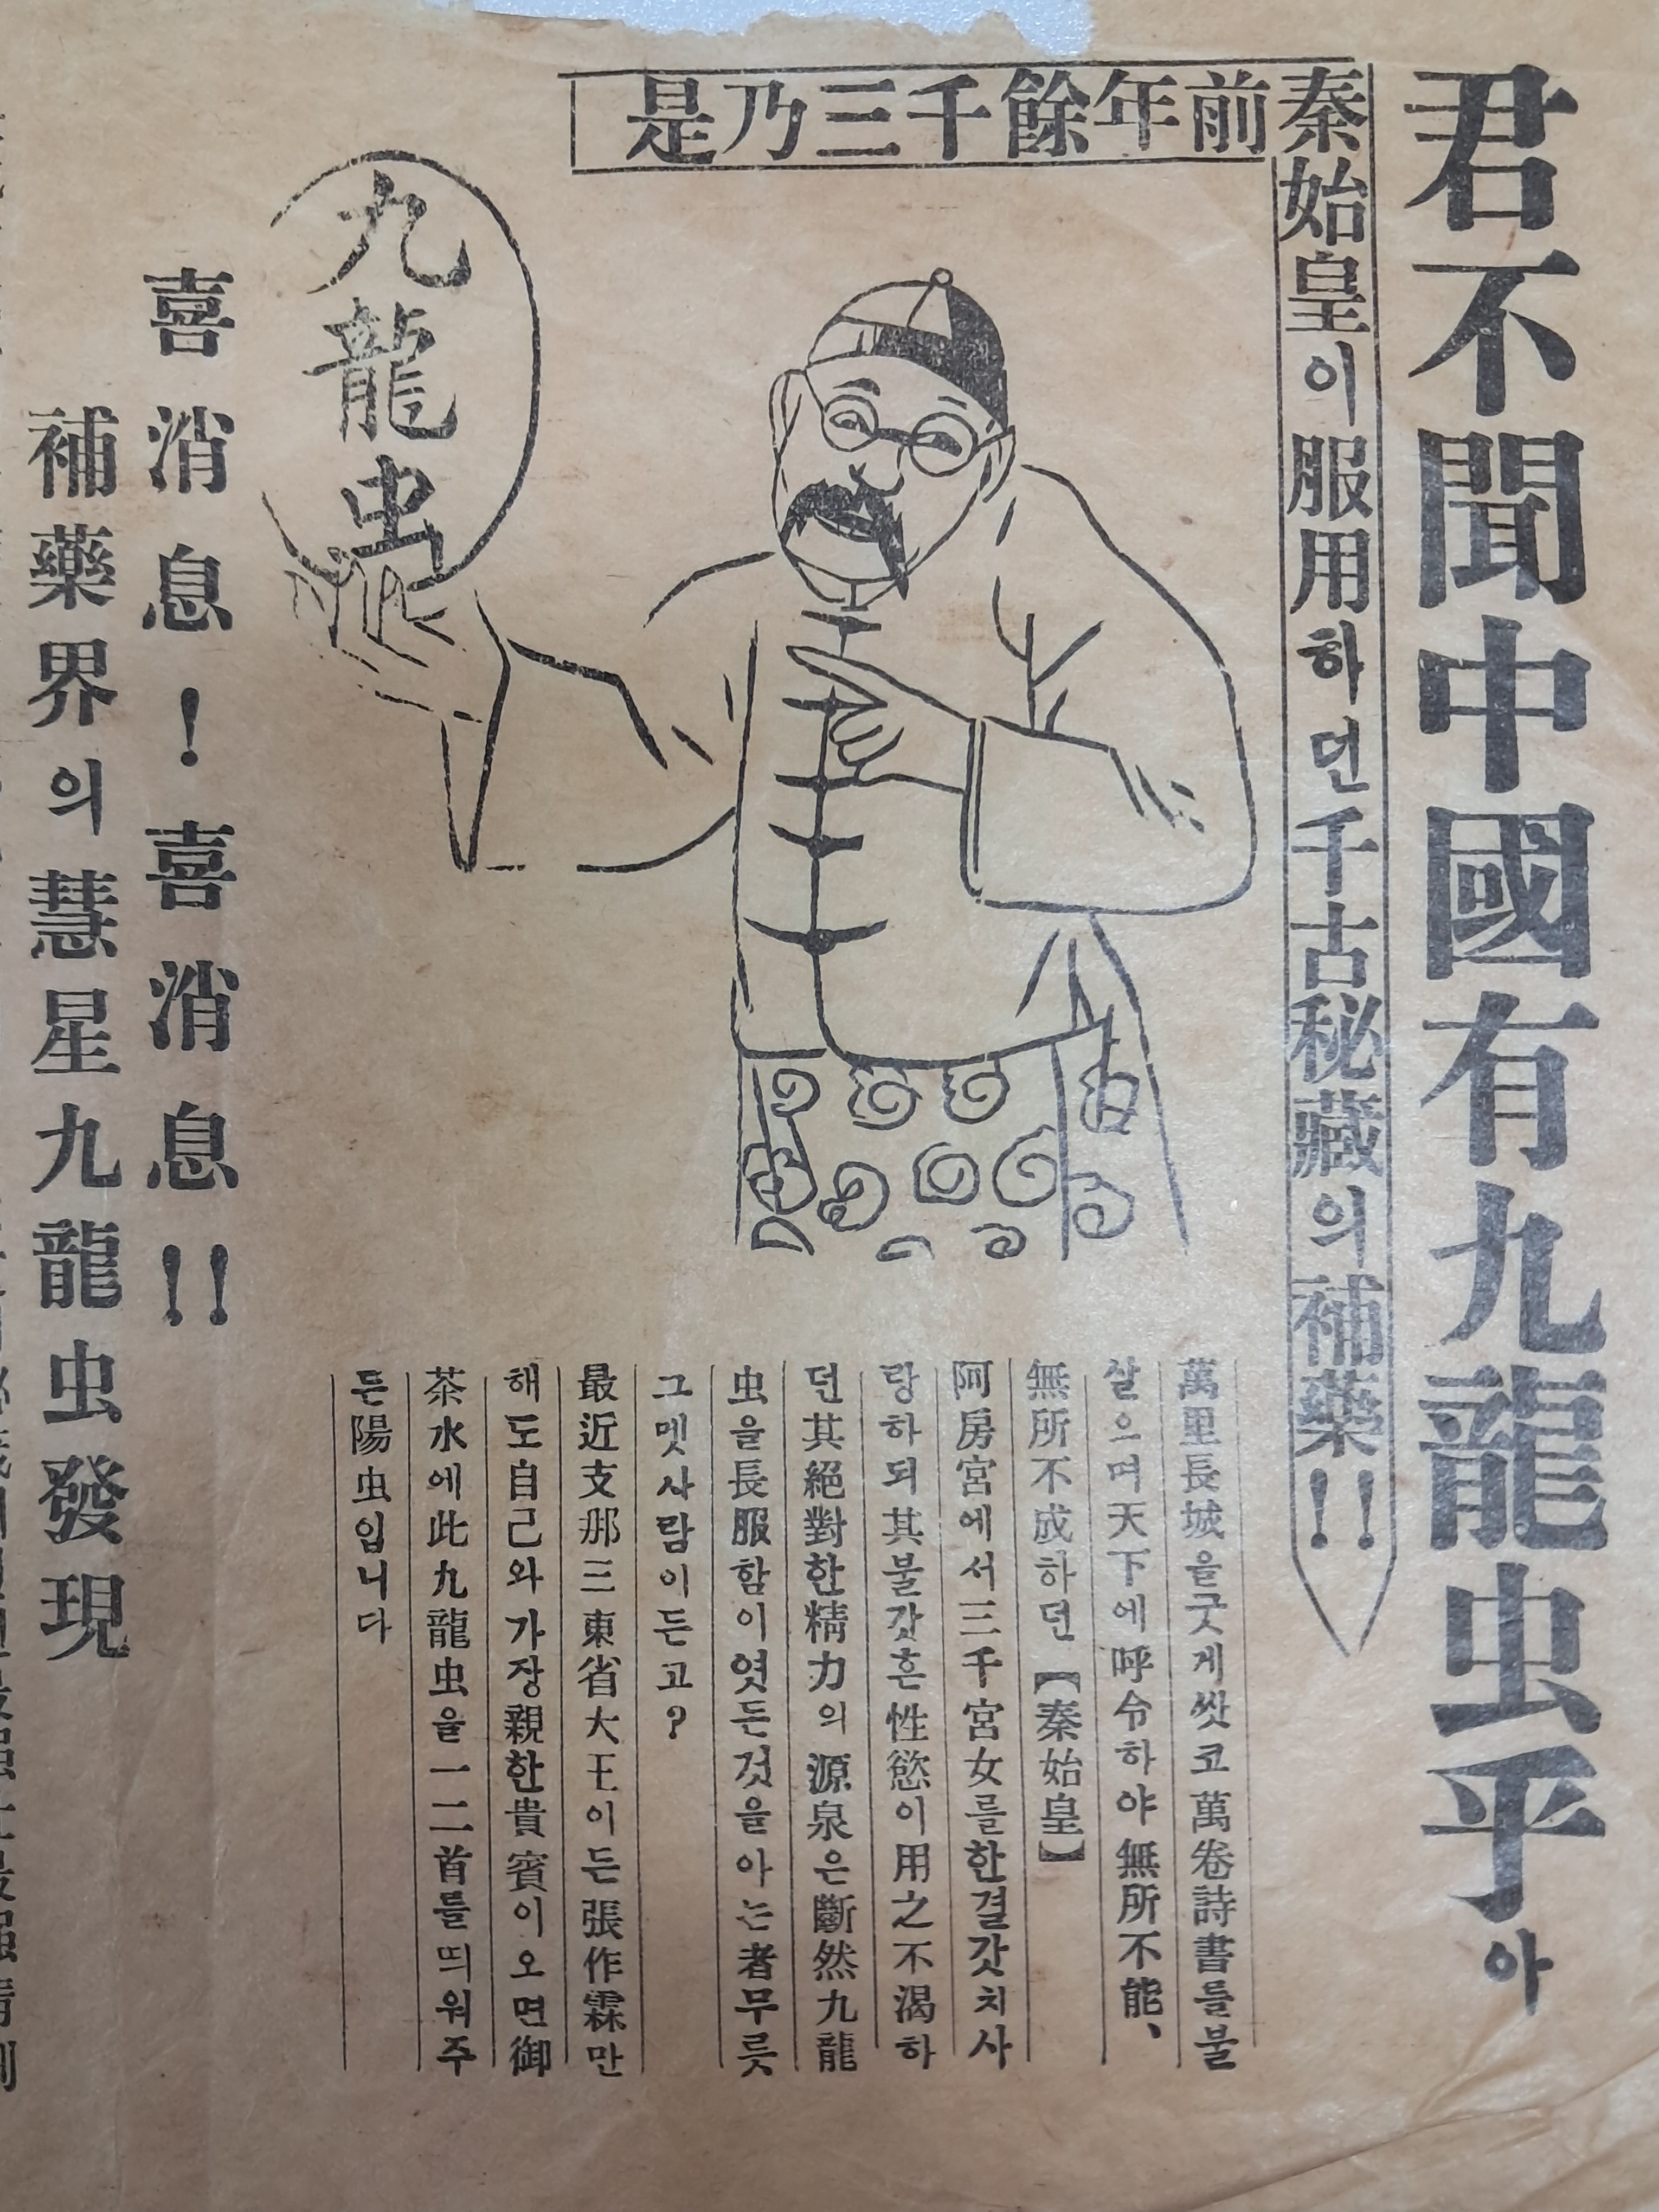 君不聞中國有九龍虫乎아
是乃三千餘年前秦始皇이服用하던千古秘藏의補藥!!
九龍虫
萬里長城을굿게쌋코萬卷詩書를불
살으며天下에呼令하야無所不能、
無所不成하던【秦始皇】
阿房宮에서三千宮女를한결갓치사
랑하되其불갓흔性慾이用之不渴하
던其絕對한精力의源泉은斷然九龍
虫을長服함이엿든것을아는者무릇
그멧사람이든고?
最近支那三東省大王이든張作霖만
해도自己와가장親한貴賓이오면御
茶水에此九龍虫을一二首를띄워주
든陽虫입니다
喜消息!喜消息!!
補藥界의慧星九龍虫發現